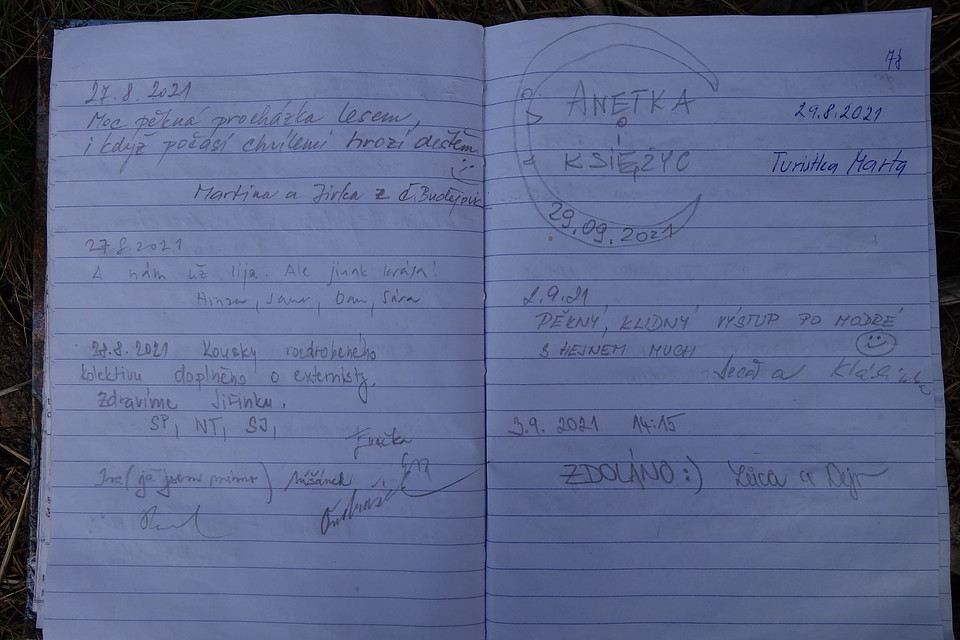 27.8.2021
Moc pěkná procházka lesem,
i když počasí chvílemi hrozí deštěm
:-)
Martina a Jirka z Č.Budějovic
27.8.2021
A nám už lija. Ale jinak krása!
Honza, Jana, Dan, Sára
28.8.2021 Kousky rozdrobeného
kolektivu doplněného o externisty.
Zdravíme Jiřinku.
SP, NT, SJ,
Evička
(já jsem mimo)
78
ANETKA
i
KSIĘŻYC
29.09.2021
29.8.2021
Turistka Marta
2.9.21
PĚKNÝ, KLIDNÝ VÝSTUP PO MODRÉ
S HEJNEM MUCH
a
3.9. 2021 14:15
ZDOLÁNO:) a